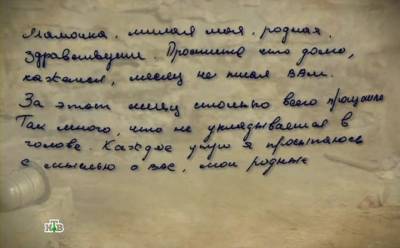 Мамочка, милая моя, родная,
здравствуйте. Простите что долго,
кажется, месяц не писал вам.
За этот месяц столько всего произошло
Так много, что не укладывается в
голове. Каждое утро я просыпаюсь
с мыслью о вас, мои родные
НТВ